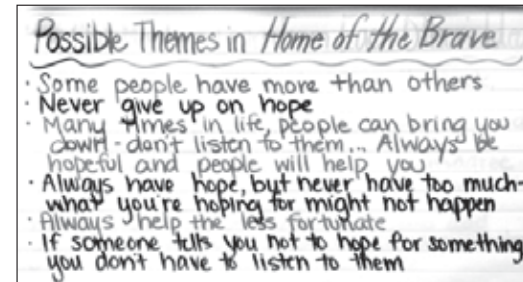 Possible Themes in Home of the Brave
· Some people have more than others
· Never give up on hope
· Many times in life, people can bring you
down - don't listen to them... Always be
hopeful and people will help you
· Always have hope, but never have too much-
what you're hoping for might not happen
· Always help the less fortunate
· If someone tells you not to hope for something
you don't have to listen to them